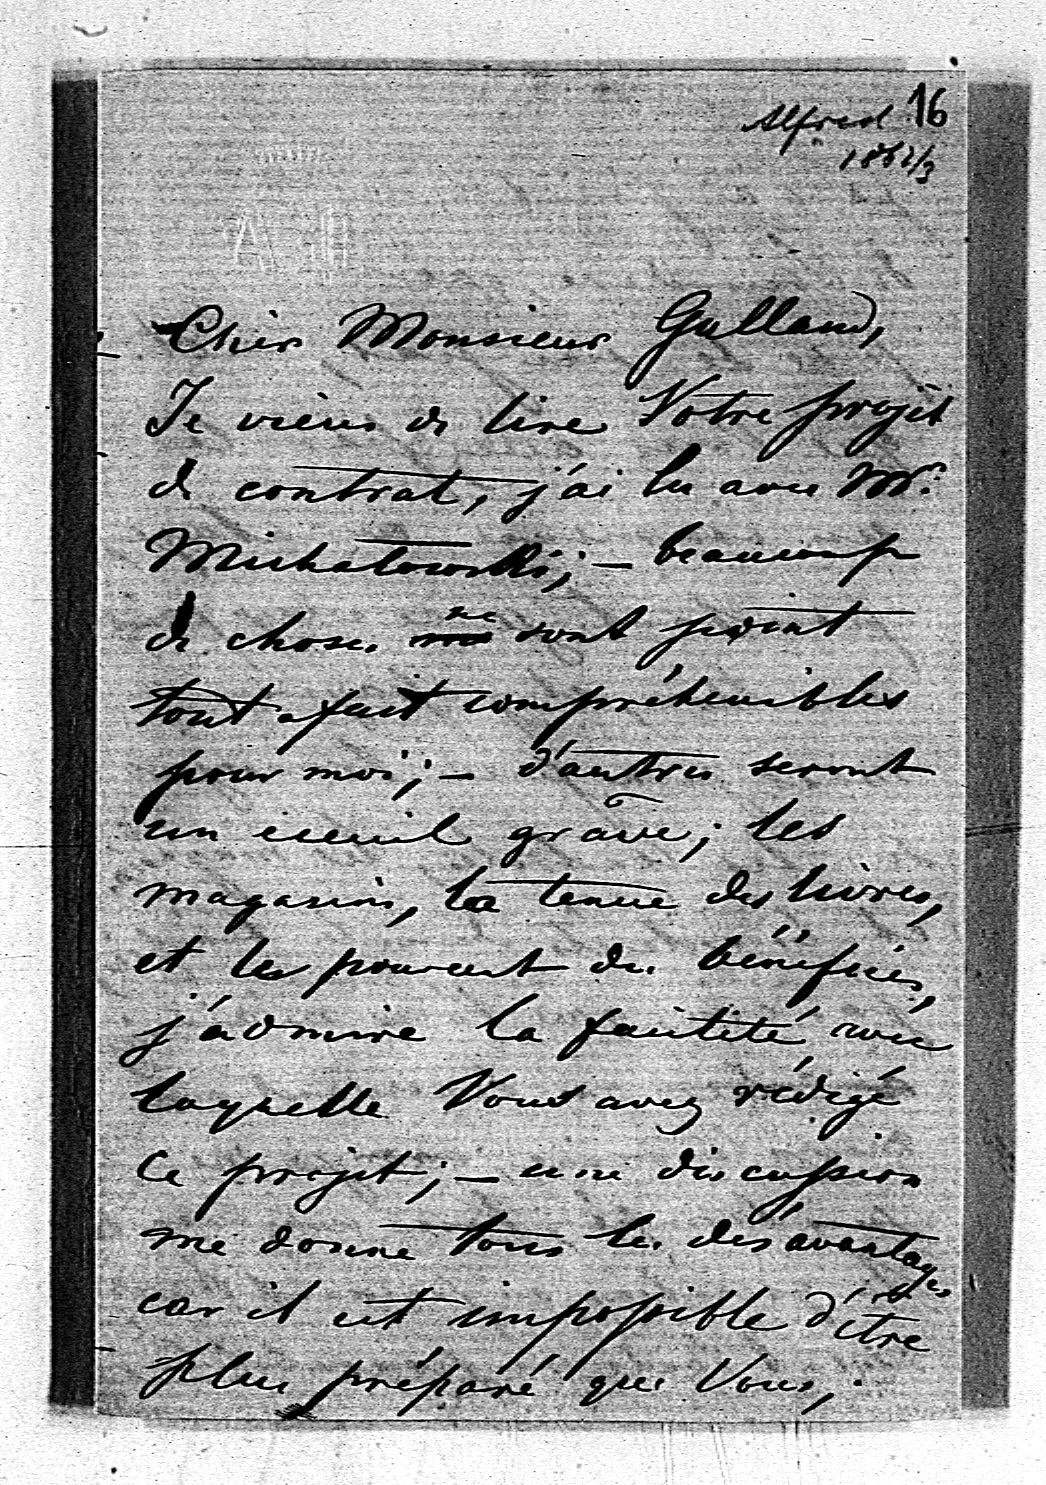 Alfred 16
1862/3
Cher Monsieur Gulland,
Je viens de lire Votre projêt
de contrat, j'ai lu avec Mr.
Michałowski; – beaucoup
de choses ne sont point
tout a fait compréhensibles
pour moi; – d'autres seront
un ecueil grave; les
magasins, la tenue des livres,
et les pourcent des bénéfices,
j'admire la facilité avec
laquelle Vous avez rédigé
ce projêt; – une discussion
me donne tous les désavantages
car il est impossible d'être
plus préparé que Vous;